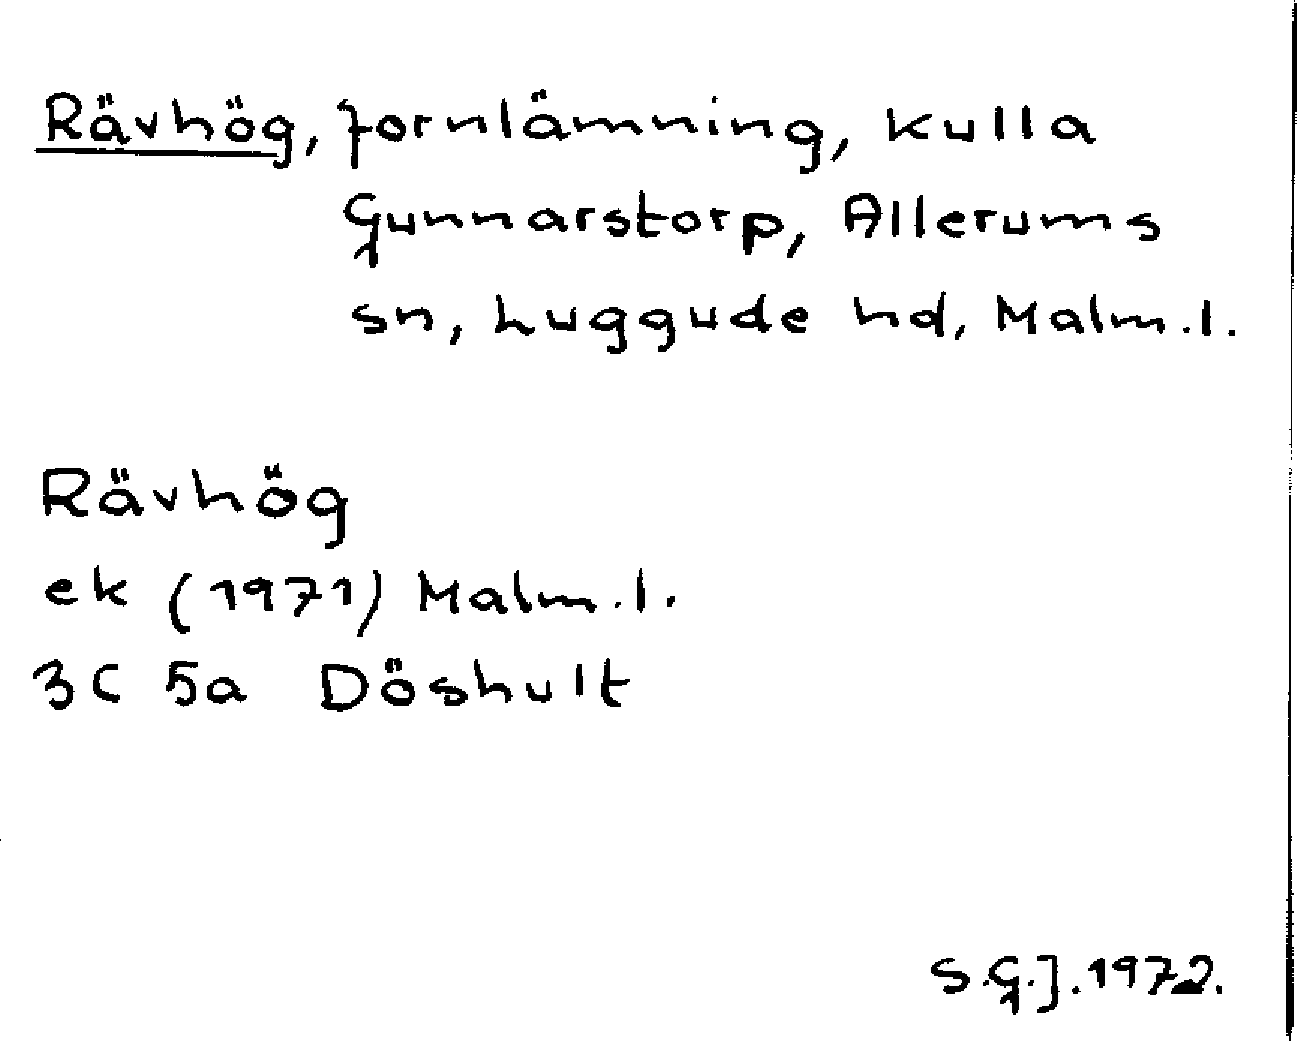 Rävhög, fornlämning, Kulla
Gunnarstorp, Allerums
sn, Luggude hd, Malm.l.
Rävhög
ek (1971) Malm.l.
3C 5a Döshult
S.G.J.1972.